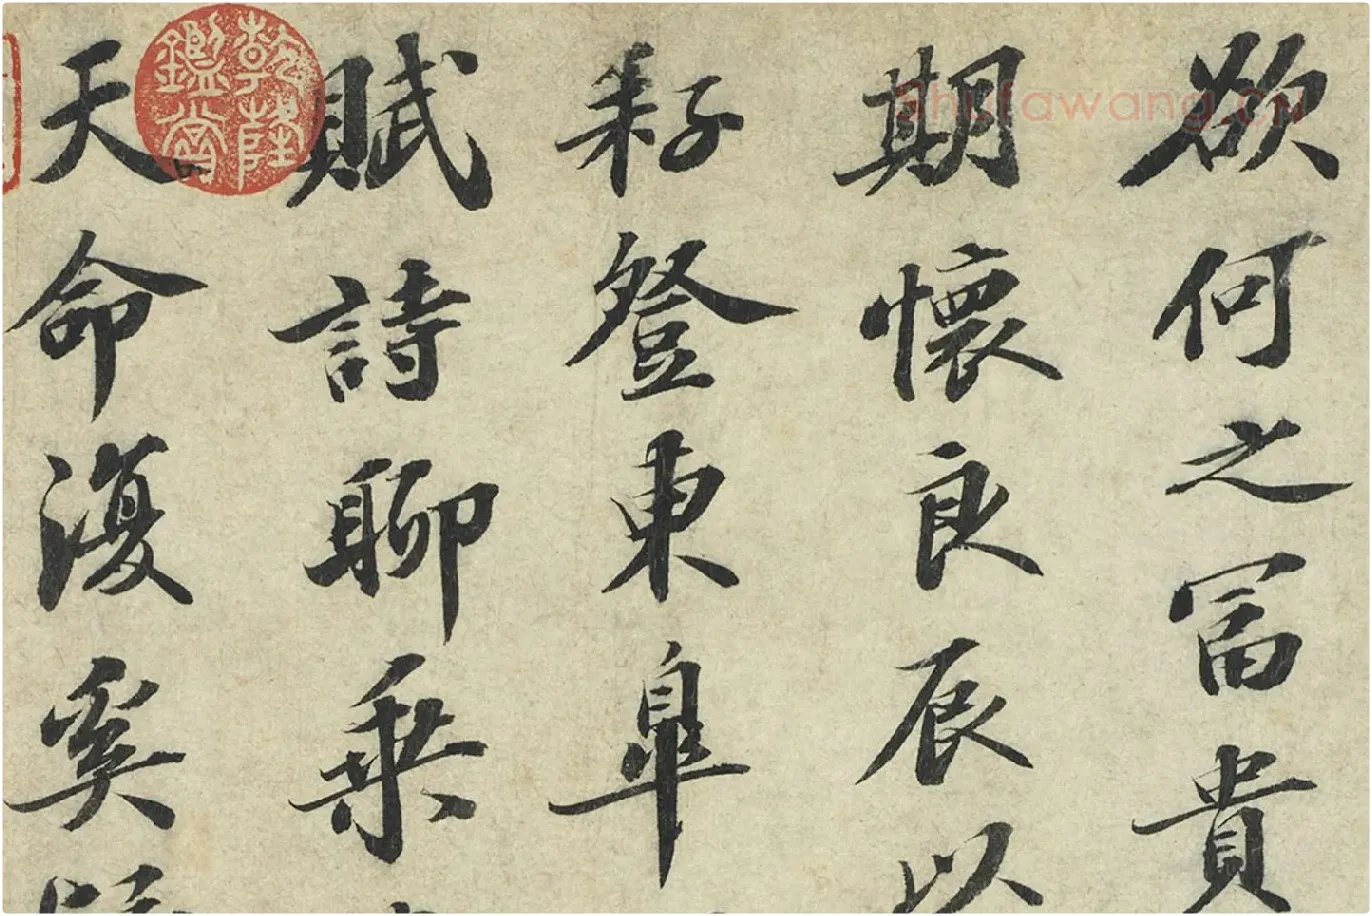 欲何之富貴
期懷良辰以
耔登東皋
賦詩聊乘
天命復奚
乾隆鑑賞
Shufawang.cn